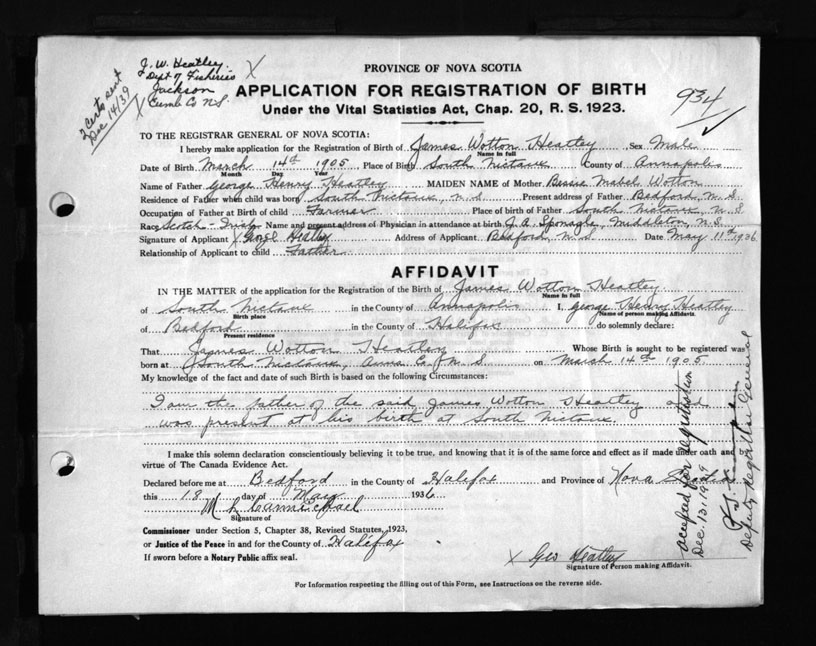 J. W. Heatley.
Dept of Fisheries
Jackson
Cumb Co N.S.
2 Certs sent
Dec 14/39
X
X
934
PROVINCE OF NOVA SCOTIA
APPLICATION FOR REGISTRATION OF BIRTH
Under the Vital Statistics Act, Chap. 20, R. S. 1923.
TO THE REGISTRAR GENERAL OF NOVA SCOTIA:
I hereby make application for the Registration of Birth of James Wotton Heatley Sex Male
Name in full
Date of Birth March 14th 1905 Place of Birth South Nictaux County of Annapolis
Month Day Year
Name of Father George Henry Heatley MAIDEN NAME of Mother Bessie Mabel Wotton
Residence of Father when child was born South Nictaux, N. S Present address of Father Bedford, N. S
Occupation of Father at Birth of child Farmer Place of birth of Father South Nictaux N. S
Race Scotch - Irish Name and present address of Physician in attendance at birth J. A. Sponagle Middleton N.S.
Signature of Applicant X George Heatley Address of Applicant Bedford, N. S. Date May 11th 1936
Relationship of Applicant to child Father
AFFIDAVIT
IN THE MATTER of the application for the Registration of the Birth of James Wotton Heatley
Name in full
of South Nictaux in the County of Annapolis I, George Henry Heatley
Birth place Name of person making Affidavit.
of Bedford in the County of Halifax do solemnly declare:
Present residence
That James Wotton Heatley Whose Birth is sought to be registered was
born at South Nictaux, Anna Co N. S on March 14th 1905.
My knowledge of the fact and date of such Birth is based on the following Circumstances:
I am the father of the said James Wotton Heatley and
was present at his birth at South Nictaux.
I make this solemn declaration conscientiously believing it to be true, and knowing that it is of the same force and effect as if made under oath and by
virtue of The Canada Evidence Act.
Declared before me at Bedford in the County of Halifax and Province of Nova Scotia
this 18 day of May 1936
M L Carmichael
Signature of
Commissioner under Section 5, Chapter 38, Revised Statutes, 1923,
or Justice of the Peace in and for the County of Halifax
If sworn before a Notary Public affix seal.
X Geo Heatley
Signature of Person making Affidavit.
For Information respecting the filling out of this Form, see Instructions on the reverse side.
Accepted for registration
Dec. 13. 1939
Deputy Registrar General